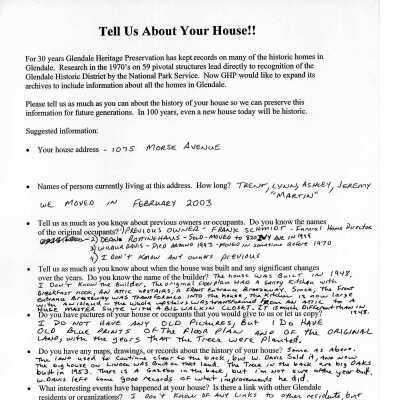 Tell Us About Your House!!
For 30 years Glendale Heritage Preservation has kept records on many of the historic homes in
Glendale. Research in the 1970's on 59 pivotal structures lead directly to recognition of the
Glendale Historic District by the National Park Service. Now GHP would like to expand its
archives to include information about all the homes in Glendale.
Please tell us as much as you can about the history of your house so we can preserve this
information for future generations. In 100 years, even a new house today will be historic.
Suggested information:
• Your house address - 1075 MORSE AVENUE
• Names of persons currently living at this address. How long? TRENT, LYNN, ASHLEY, JEREMY
"MARTIN"
WE MOVED IN FEBRUARY 2003
• Tell us as much as you know about previous owners or occupants. Do you know the names
of the original occupants? 1) PREVIOUS OWNER - FRANK SCHMIDT - Funeral Home Director
2) DEAN ROTTINGHAUS - SOLD - MOVED to IN 1995
3) WILBUR DAVIS - DIED AROUND 1993 - MOVED IN sometime before 1970
4) I DON'T KNOW ANY OWNERS PREVIOUS
• Tell us as much as you know about when the house was built and any significant changes
over the years. Do you know the name of the builder? THE HOUSE WAS BUILT IN 1948.
I DON'T KNOW the Builder, THE ORIGINAL floorplan HAD A Kitchen with
BREAKFAST NOOK, AN ATTIC UPSTAIRS, A FRONT ENTRANCE BREEZEWAY, SINCE, THE FRONT
ENTRANCE BREEZEWAY WAS TRANSFORMED INTO THE HOUSE, THE KITCHEN IS NOW LARGE
with AN ISLAND, THE whole UPSTAIRS WAS TRANSFORMED FROM AN ATTIC TO A
HUGE MASTER SUITE WITH A BIG WALKIN CLOSET, IT IS MUCH DIFFERENT THAN IN 1948.
• Do you have pictures of your house or occupants that you would give to us or let us copy?
I DO NOT HAVE ANY OLD PICTURES, BUT I DO HAVE
OLD BLUE PRINTS OF THE FLOOR PLAN AND OF THE ORIGINAL
LAND, with the years THAT THE Trees WERE PLANTED.
• Do you have any maps, drawings, or records about the history of your house? Same as above.
The land used to continue clear to the back, but W. Davis Sold it, AND NOW
The big house on LINDEN WAS built on that land. The Trees in the back are big OAKS
built in 1953. There is A GAZEBO in the back, but I'm not sure of the year built.
W. DAVIS left some good records of what improvements he did.
• What interesting events have happened at your house? Is there a link with other Glendale
residents or organizations? I DON'T KNOW OF ANY LINKS TO other residents, but